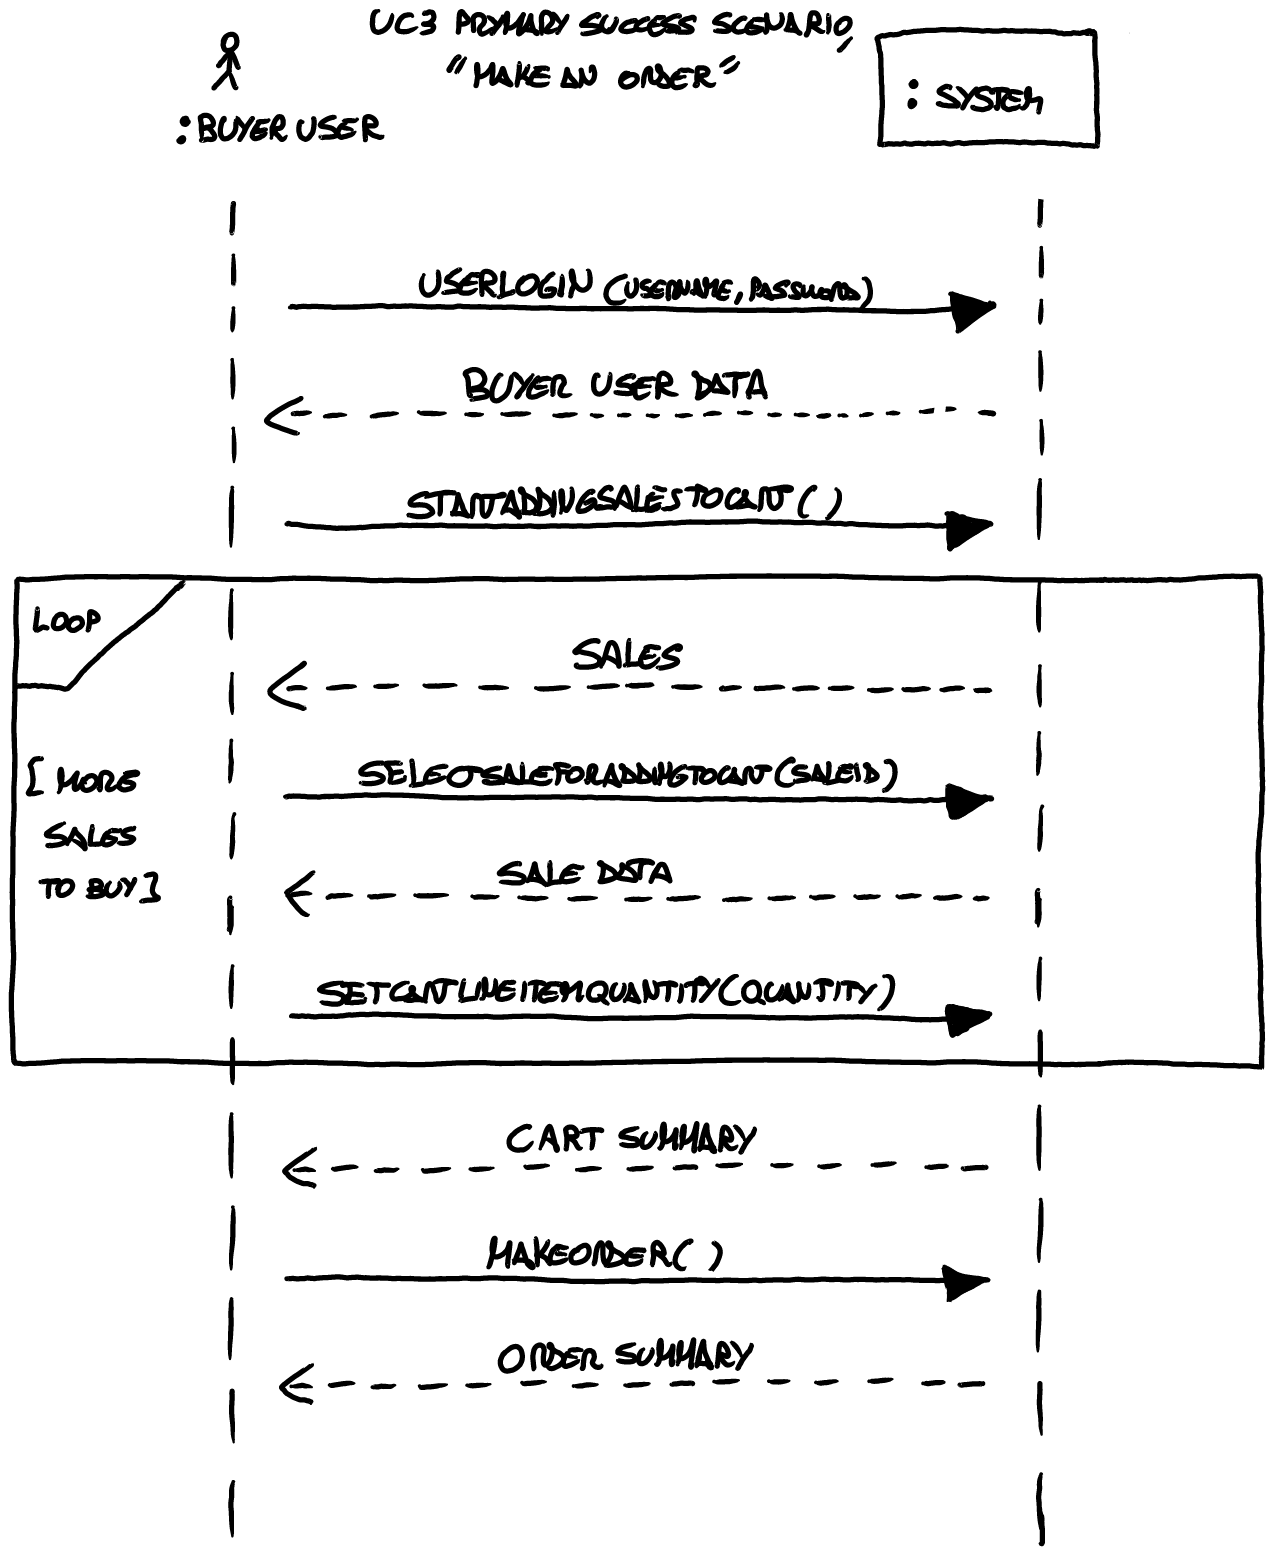 UC3 PRYMARY SUCCESS SCENARIO,
"MAKE AN ORDER"
: SYSTEM
: BUYER USER
USERLOGIN (USERNAME, PASSWORD)
BUYER USER DATA
STARTADDINGSALESTOCART ( )
LOOP
SALES
[ MORE
SALES
TO BUY ]
SELECTSALEFORADDINGTOCART (SALEID)
SALE DATA
SETCARTLINEITEMQUANTITY (QUANTITY)
CART SUMMARY
MAKEORDER ( )
ORDER SUMMARY